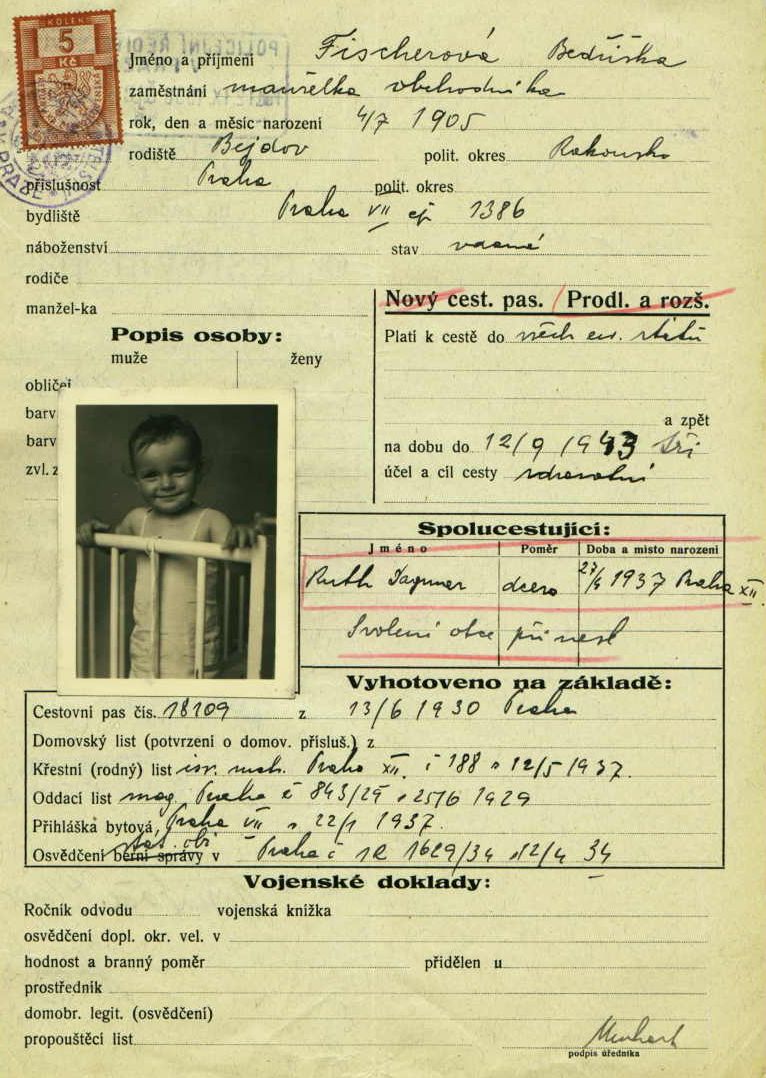 KOLEK
5
Kč
Jméno a příjmení Fischerová Bedřiška
zaměstnání manželka obchodníka
rok, den a měsíc narození 4/7 1905
rodiště Bejdov polit. okres Rakousko
příslušnost Praha polit. okres
bydliště Praha VII čp 1386
náboženství stav vdaná
rodiče
manžel-ka
Nový cest. pas. Prodl. a rozš.
Popis osoby:
muže ženy
Platí k cestě do všech ev. států
obličej
barv
barv
zvl. z
a zpět
na dobu do 12/9 1943 tři
účel a cíl cesty zdravotní
Spolucestující:
Jméno Poměr Doba a místo narození
Ruth Dagmar dcera 27/4 1937 Praha XII.
Svolení otce přinesl
Vyhotoveno na základě:
Cestovní pas čís. 18109 z 13/6 1930 Praha
Domovský list (potvrzení o domov. přísluš.) z
Křestní (rodný) list isr. Praha XII. č 188 12/5 1937.
Oddací list mag Praha č 843/29 25/6 1929
Přihláška bytová, Praha VII 22/1 1937.
stat. obč
Osvědčení berní správy v Praha č 1629/34 12/4 34
Vojenské doklady:
Ročník odvodu vojenská knížka
osvědčení dopl. okr. vel. v
hodnost a branný poměr přidělen u
prostředník
domobr. legit. (osvědčení)
propouštěcí list
podpis úředníka